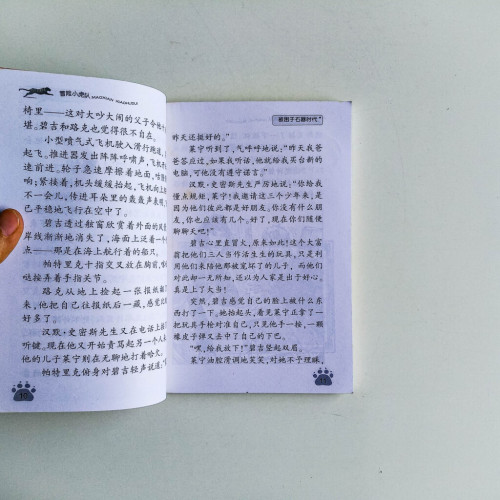 冒险小虎队 MAOXIAN XIAOHUDUI
椅里——这对大吵大闹的父子令他
堪。碧吉和路克也觉得很不自在。
小型喷气式飞机驶入滑行跑道,
起飞。推进器发出阵阵呼啸声,飞机
速前进。轮子急速摩擦着地面,
响;紧接着,机头缓缓抬起,飞机向上
不一会儿,传进耳朵里的轰轰声表明
已平稳地飞行在空中了。
碧吉透过舷窗欣赏着外面的
岸线渐渐地消失了,海面上送着一个
点——那是在海上航行着的船只。
帕特里克十指交叉放在胸前,
哒按弄着手指关节。
路克从地上捡起一张报纸
来,他把自己往报纸后一藏,感觉
好多了。
汉默·史密斯先生又在电话上
听键。现在他又开始责骂起另一个人
他的儿子莱宁则在无聊地打着哈欠。
帕特里克俯身对碧吉轻声说道:
10
被困于石器时代
昨天还挺好的。”
莱宁听到了,气呼呼地说:“昨天我爸
爸答应过,如果我听话,他就给我买台新的
电脑,可他没有遵守诺言。”
汉默·史密斯先生严厉地说:“你给我
懂点规矩,莱宁!我邀请这三个少年来,是
因为他们彼此都是好朋友。你没有什么朋
友,你也应该有几个。好了,现在你们随便
聊聊天吧!”
碧吉心里直冒火,原来如此!这个大富
翁把他们三人当作活生生的玩具,只是利
用他们来陪他那被宠坏了的儿子,而他们
对此却一无所知,还以为人家是出于好心,
真是上了大当!
突然,碧吉感觉自己的脸上被什么东
西打了一下。她抬起头,看见莱宁正拿了一
把玩具手枪对准自己,只见他手一按,一颗
橡皮子弹又击中了自己的下巴。
“嘿,给我放下!”碧吉竖起双眉。
莱宁油腔滑调地笑笑,对她不予理睬,
11